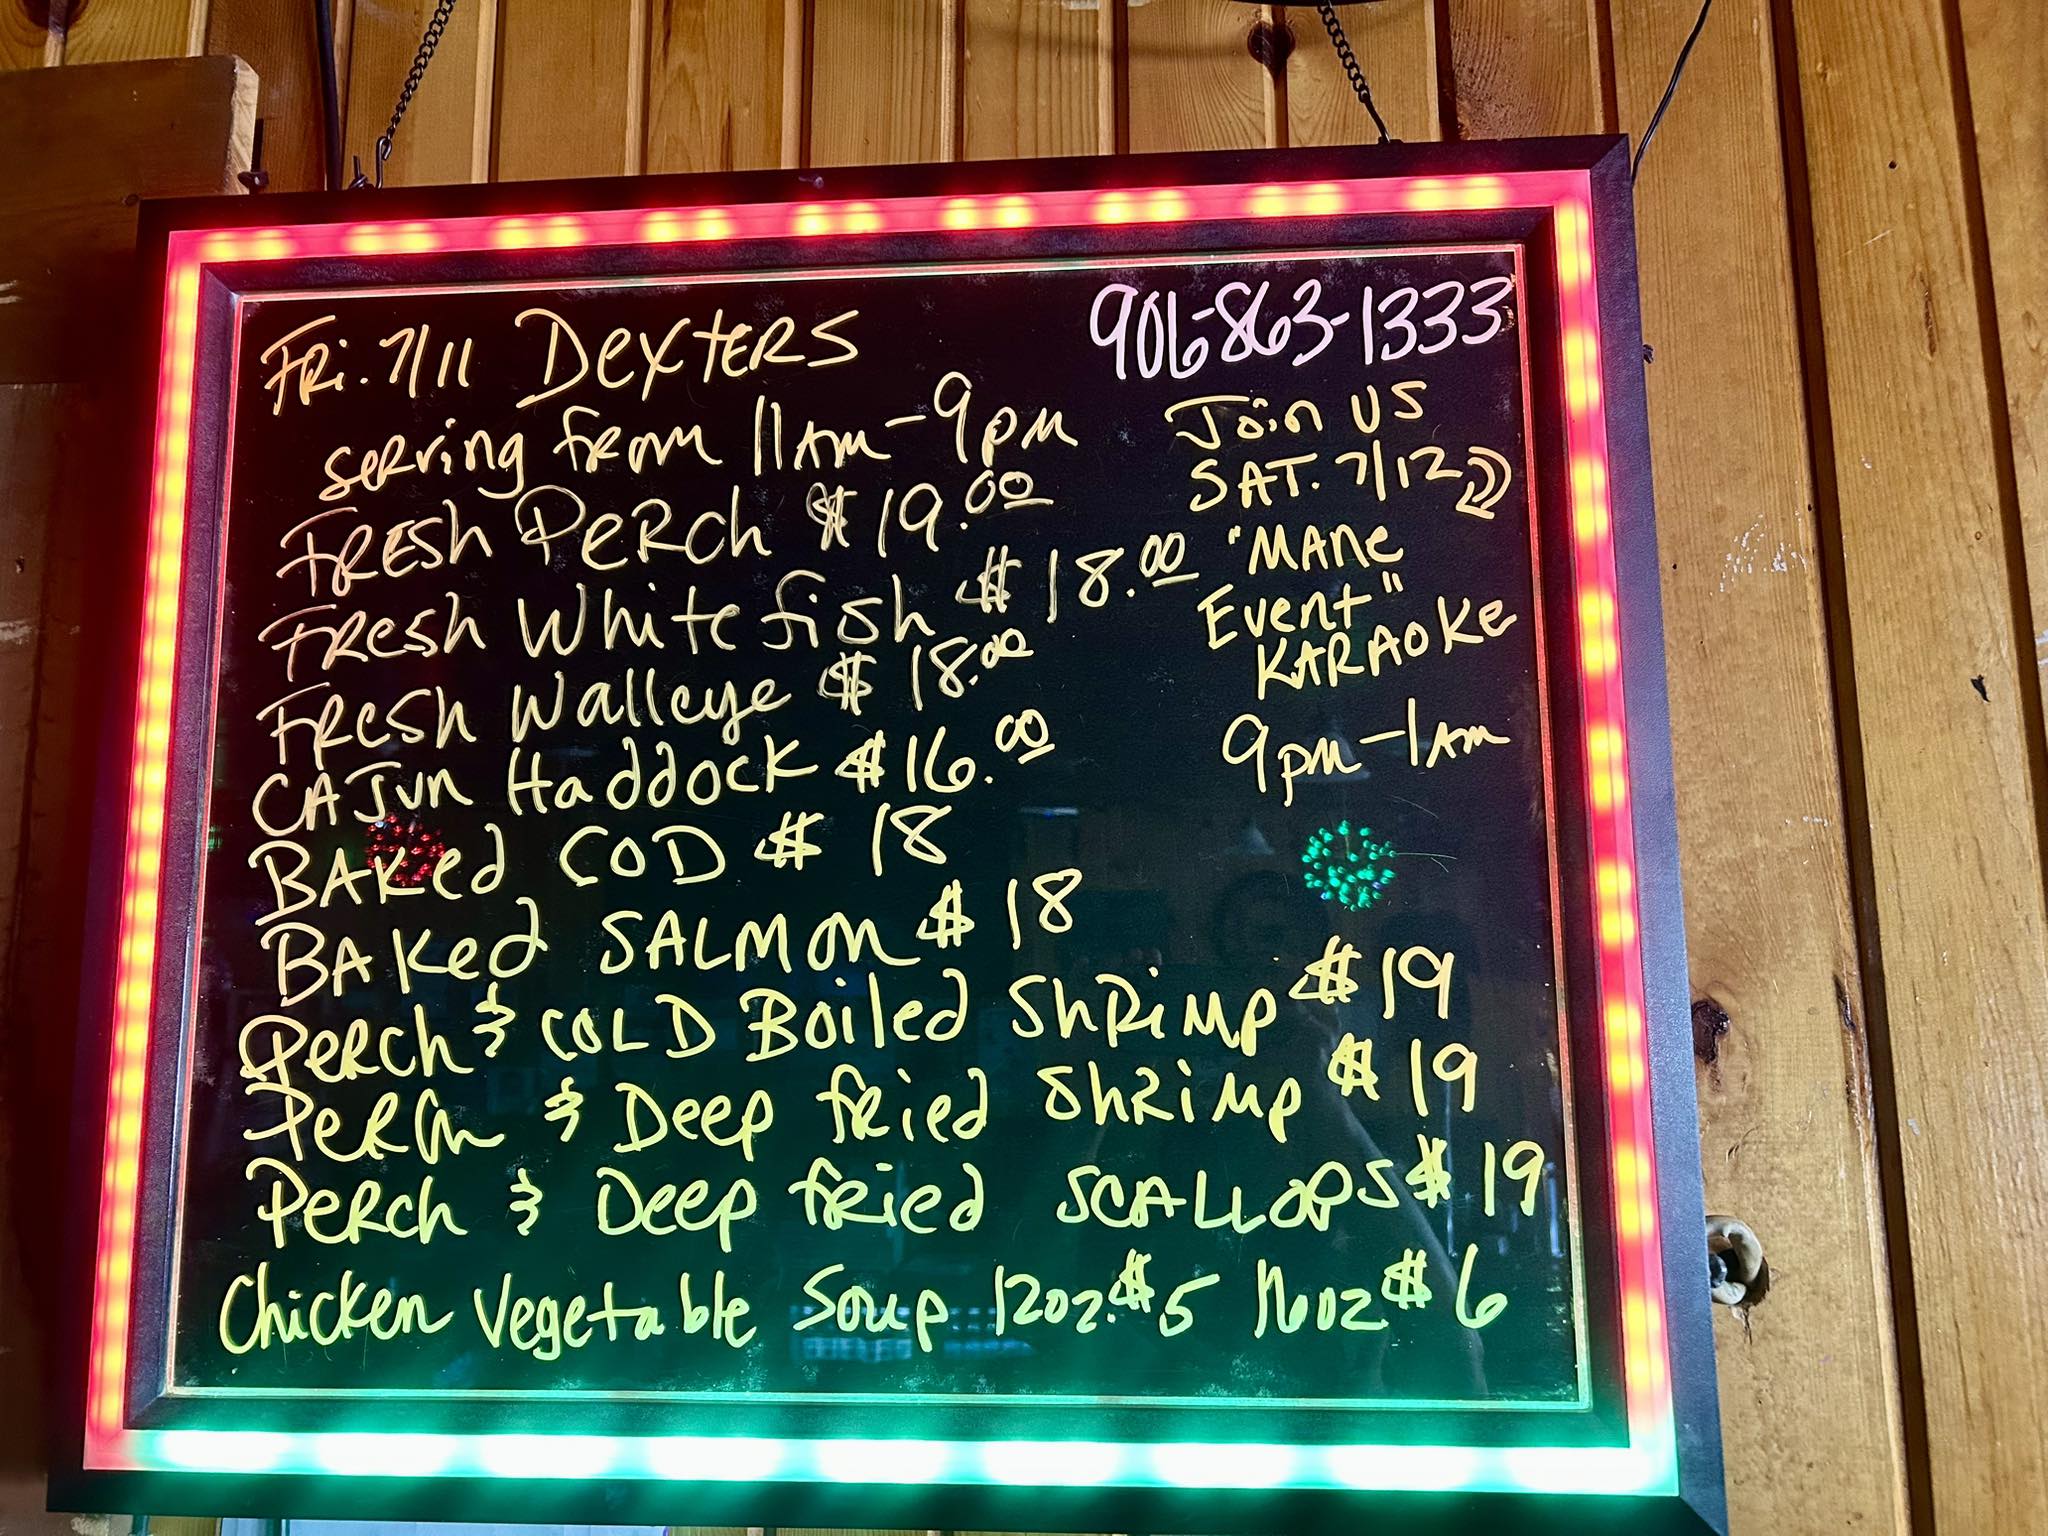 Fri. 7/11 Dexters
serving from 11am-9pm
Fresh Perch $19.00
Fresh Whitefish $18.00
Fresh Walleye $18.00
Cajun Haddock $16.00
Baked COD $18
Baked Salmon $18
Perch & COLD Boiled Shrimp $19
Perch & Deep fried Shrimp $19
Perch & Deep fried SCALLOPS $19
Chicken Vegetable Soup 12oz. $5 16oz $6
906-863-1333
Join US
SAT. 7/12
"Mane
Event"
KARAOKe
9pm-1am